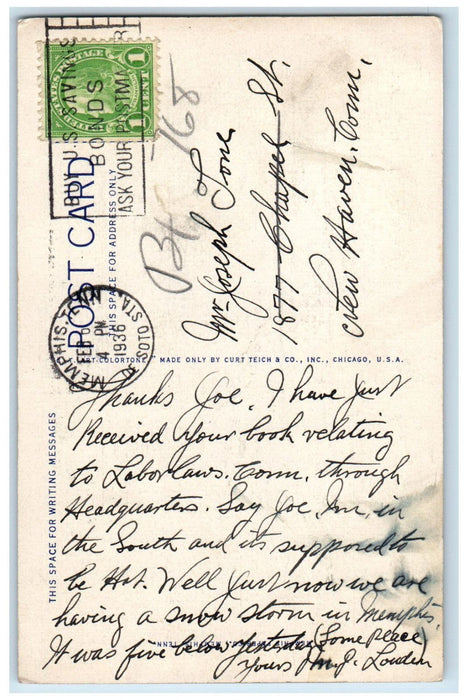 BUY U.S. SAVINGS
BONDS
ASK YOUR POSTMASTER
UNITED STATES POSTAGE
1 1
CENT
MEMPHIS, TENN.
FEB
4 PM
1936
SOTO STA.
POST CARD
THIS SPACE FOR ADDRESS ONLY
768
Mr Joseph Tone
1877 Chapel St.
New Haven, Conn.
ART-COLORTONE MADE ONLY BY CURT TEICH & CO., INC., CHICAGO, U.S.A.
THIS SPACE FOR WRITING MESSAGES
Thanks Joe, I have just
Received your book relating
to Labor laws. Conn, through
Headquarters. Say Joe, Im, in
the South and its supposed to
be Hot. Well Just now we are
having a snow storm in Memphis.
It was five below yesterday (Some place)
Yours J Louden